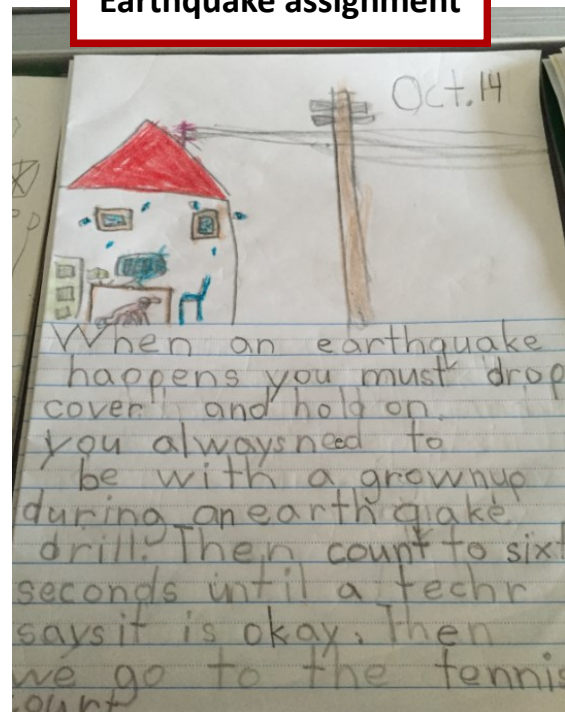 Earthquake assignment
Oct. 14
When an earthquake
happens you must drop
cover and hold on.
you always need to
be with a grownup
during an earth qiake
drill. Then count to sixt
seconds until a techr
says it is okay. Then
we go to the tennis
court